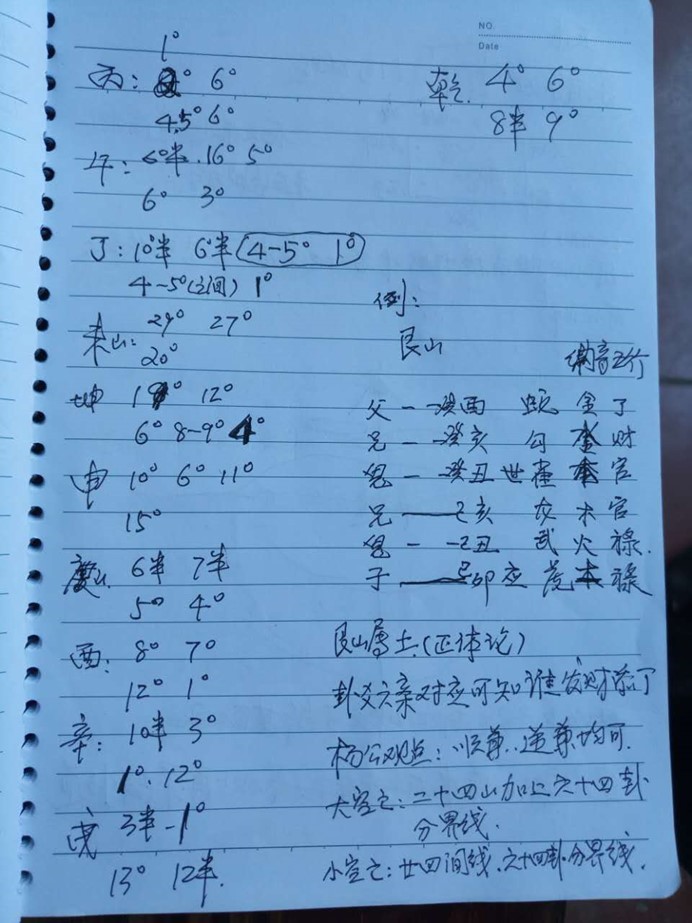 NO.
Date
1°
丙： 6°
4.5° 6°
午：6°半.16° 5°
6° 3°
丁：10°半 6°半 4-5° 1°
4-5°(之间) 1°
未山： 29° 27°
20°
坤 12°
6° 8-9° 4°
申 10° 6° 11°
15°
庚山 6半 7半
5° 4°
酉： 8° 7°
12° 1°
辛： 10半 3°
1°. 12°
戌 3半-1°
13° 12半.
乾. 4° 6°
8半 9°
例：
艮山
纳音五行
父 -- 癸酉 蛇 金 丁
兄 -- 癸亥 勾 财
鬼 -- 癸丑 世 官
兄 — 乙亥 龙 木 官
鬼 -- 乙丑 武 火 禄.
子 — 卯 应 虎 禄
艮山属土.(正体论)
卦爻六亲对应可知谁发财添丁
杨公观点：顺算.逆算均可.
大空亡：二十四山加上六十四卦
分界线.
小空亡：廿四间线.六十四卦分界线.